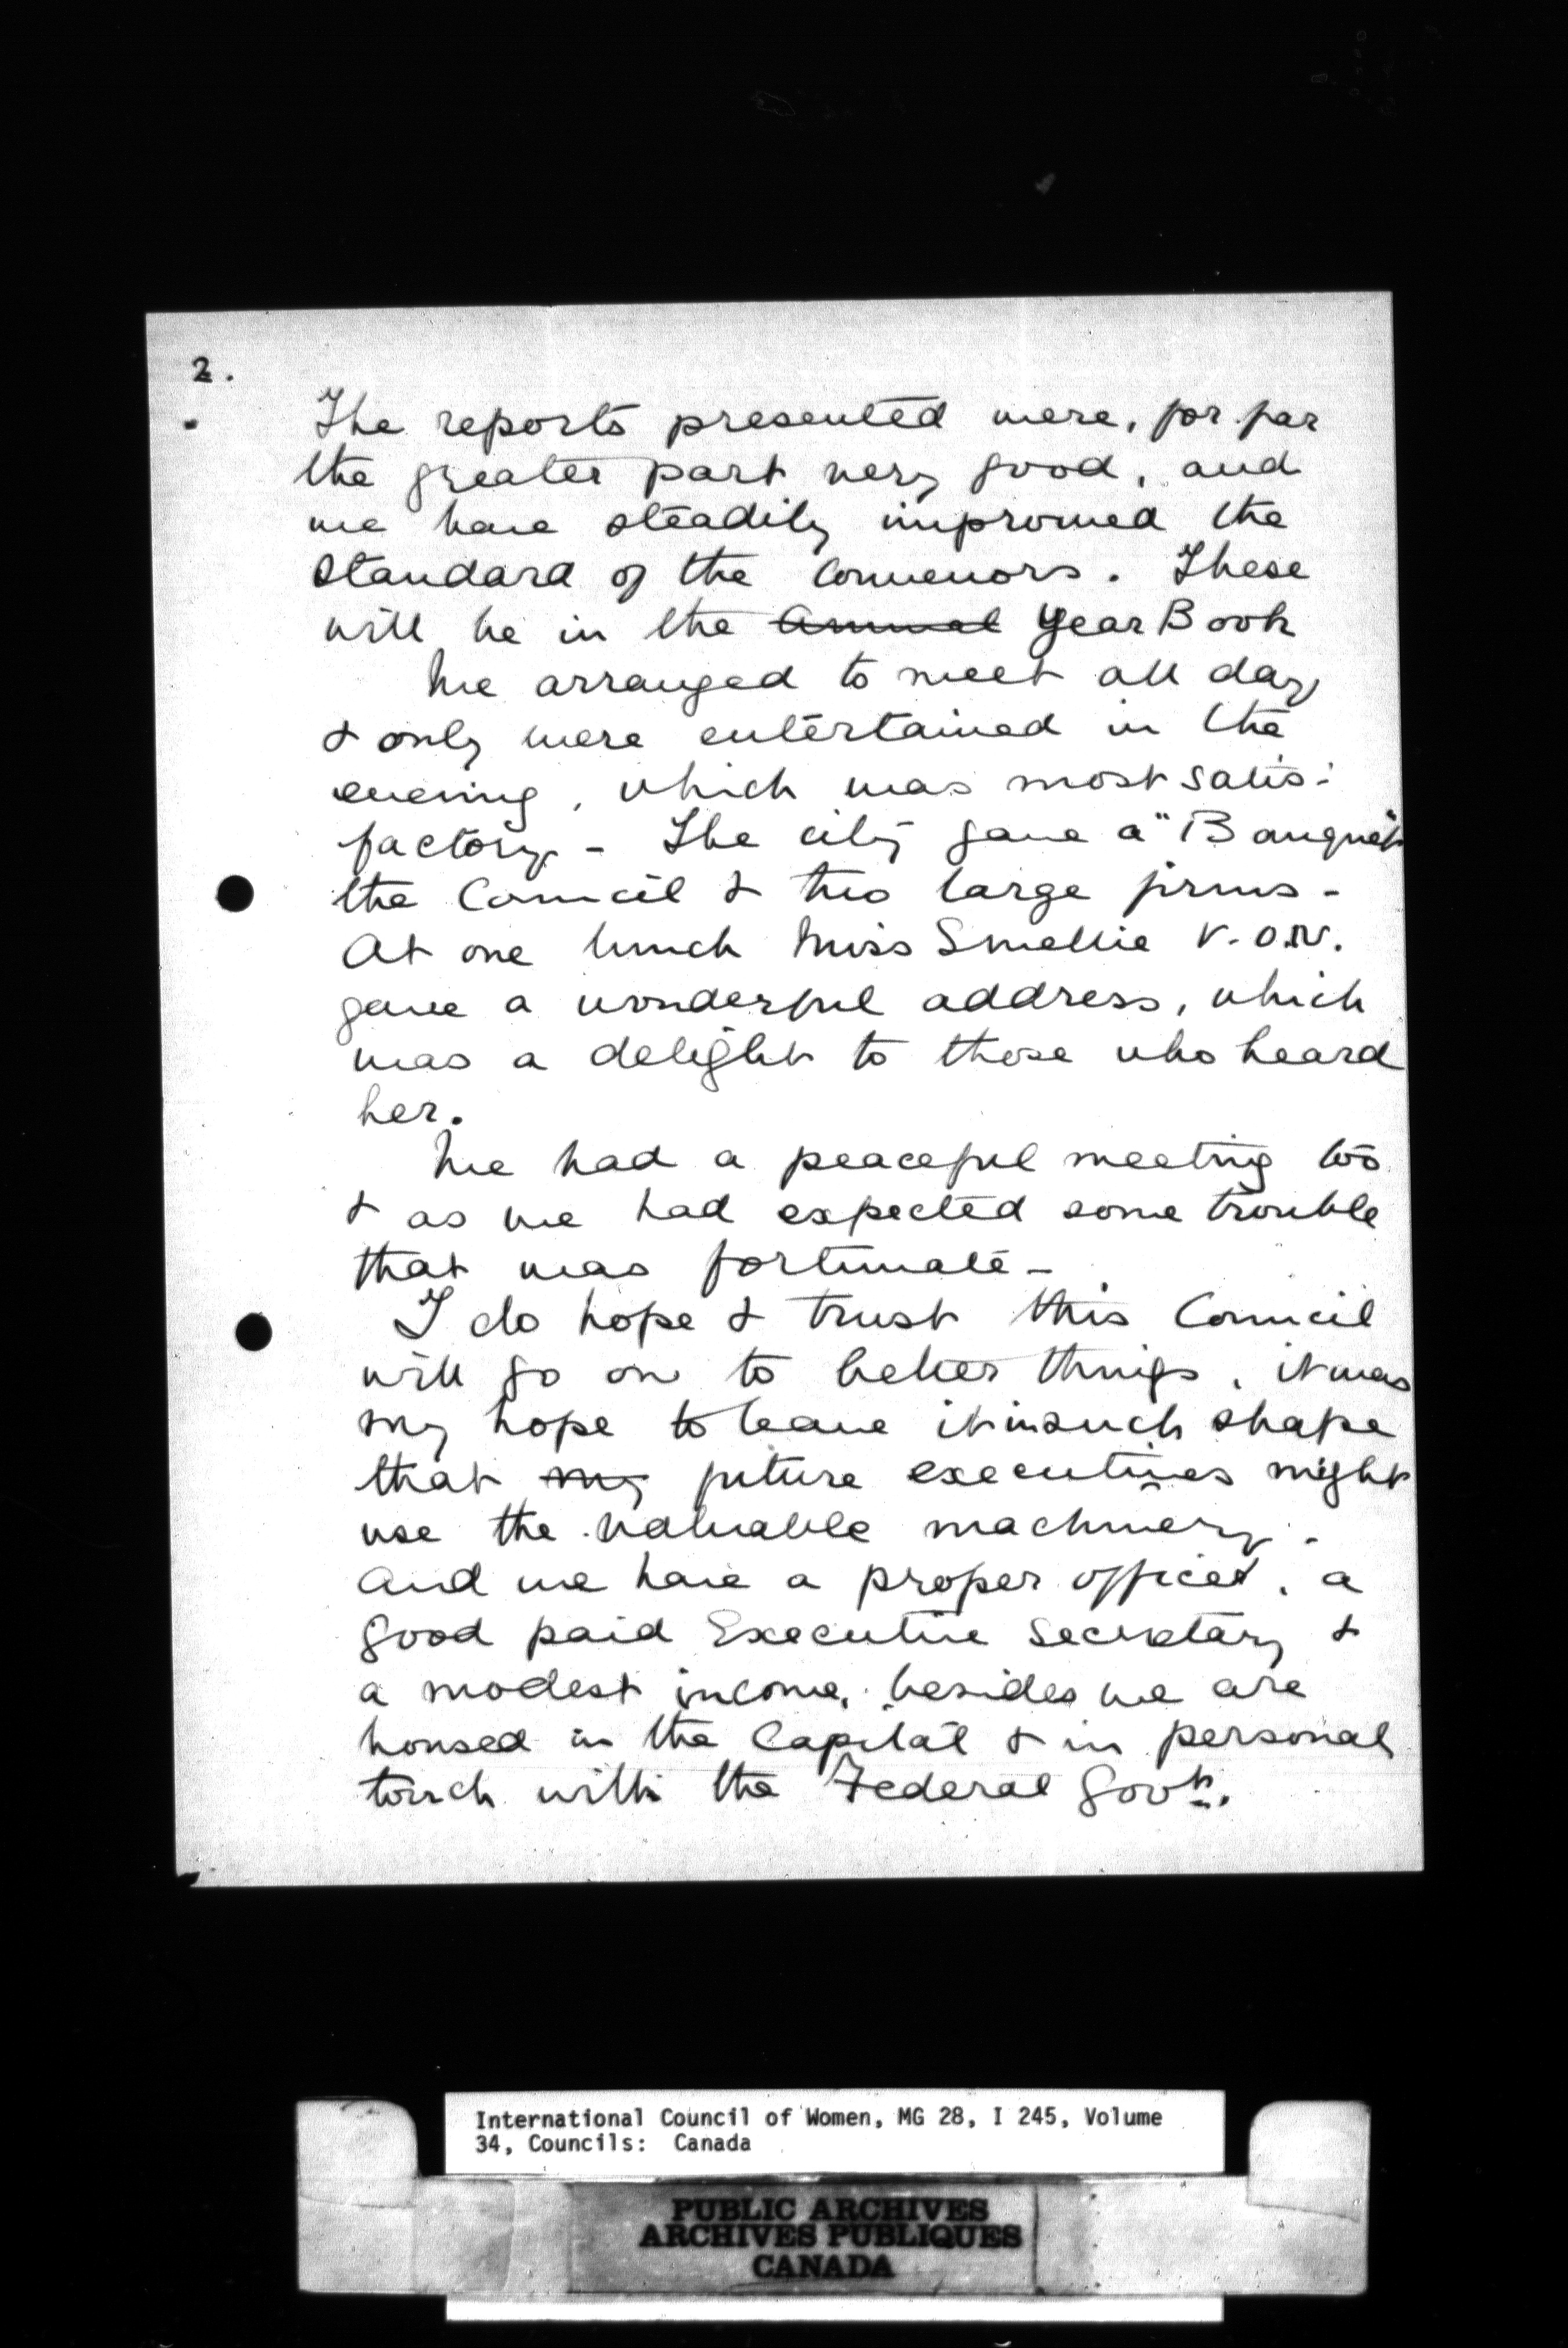 2.
The reports presented were, for far
the greater part very good, and
we have steadily improved the
standard of the Convenors. These
will be in the Annual Year Book
We arranged to meet all day
& only were entertained in the
evening, which was most satis-
factory - The city gave a "Banquet"
the Council & two large firms -
At one lunch Miss Smellie V.O.N.
gave a wonderful address, which
was a delight to those who heard
her.
We had a peaceful meeting too
& as we had expected some trouble
that was fortunate -
I do hope & trust this Council
will go on to better things, it was
my hope to leave it in such shape
that my future executives might
use the valuable machinery.
And we have a proper office, a
good paid Executive Secretary &
a modest income, besides we are
housed in the Capital & in personal
touch with the Federal Govt.
International Council of Women, MG 28, I 245, Volume
34, Councils: Canada
PUBLIC ARCHIVES
ARCHIVES PUBLIQUES
CANADA